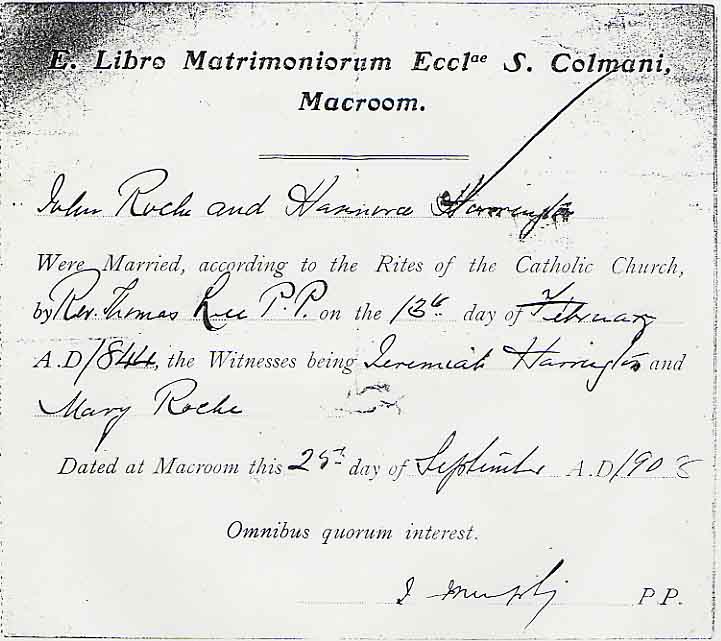 E. Libro Matrimoniorum Ecclae S. Colmani,
Macroom.
John Roche and Hannora Harrington
Were Married, according to the Rites of the Catholic Church,
by Rev. Thomas Lee P.P. on the 13th day of February
A.D 1844, the Witnesses being Jeremiah Harrington and
Mary Roche
Dated at Macroom this 25th day of September A.D 1908
Omnibus quorum interest.
J Murphy P.P.